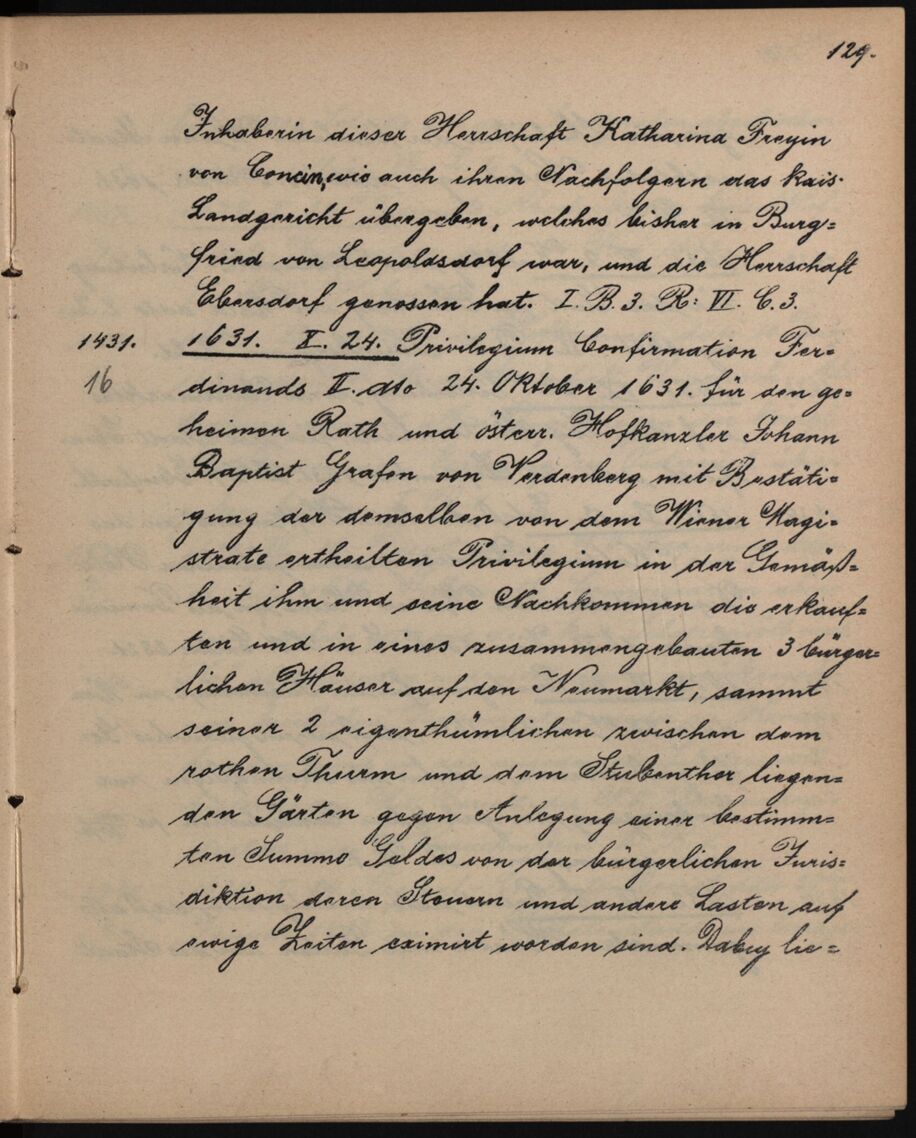 129.
Inhaberin dieser Herrschaft Katharina Freyin
von Concin, wie auch ihren Nachfolgern das kais.
Landgericht übergeben, welches bisher in Burg=
fried von Leopoldsdorf war, und die Herrschaft
Ebersdorf genossen hat. I. B. 3. R: VI. C. 3.
1431. 1631. X. 24. Privilegium Confirmation Fer=
16 dinands II. dto 24. Oktober 1631. für den ge=
heimen Rath und österr. Hofkanzler Johann
Baptist Grafen von Verdenberg mit Bestäti=
gung der demselben von dem Wiener Magi=
strate ertheilten Privilegium in der Gemäß=
heit ihm und seine Nachkommen die erkauf=
ten und in eines zusammengebauten 3 bürger=
lichen Häuser auf den Neumarkt, sammt
seiner 2 eigenthümlichen zwischen dem
rothen Thurm und dem Stubenthor liegen=
den Gärten gegen Anlegung einer bestimm=
ten Summe Geldes von der bürgerlichen Juris=
diktion deren Steuern und andere Lasten auf
ewige Zeiten eximirt worden sind. Dabey lie=